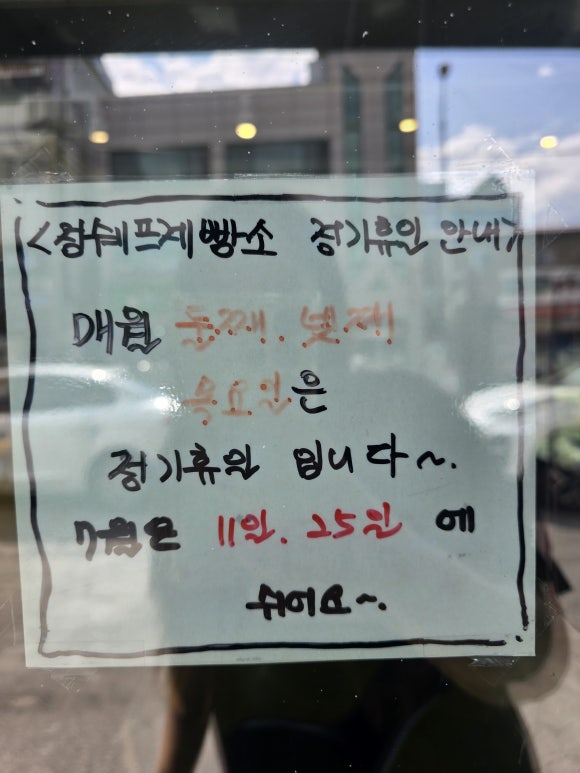 <정쉐프제빵소 정기휴일 안내>
매월 둘째. 넷째
목요일은
정기휴일 입니다~.
7월은 11일. 25일 에
쉬어요~.